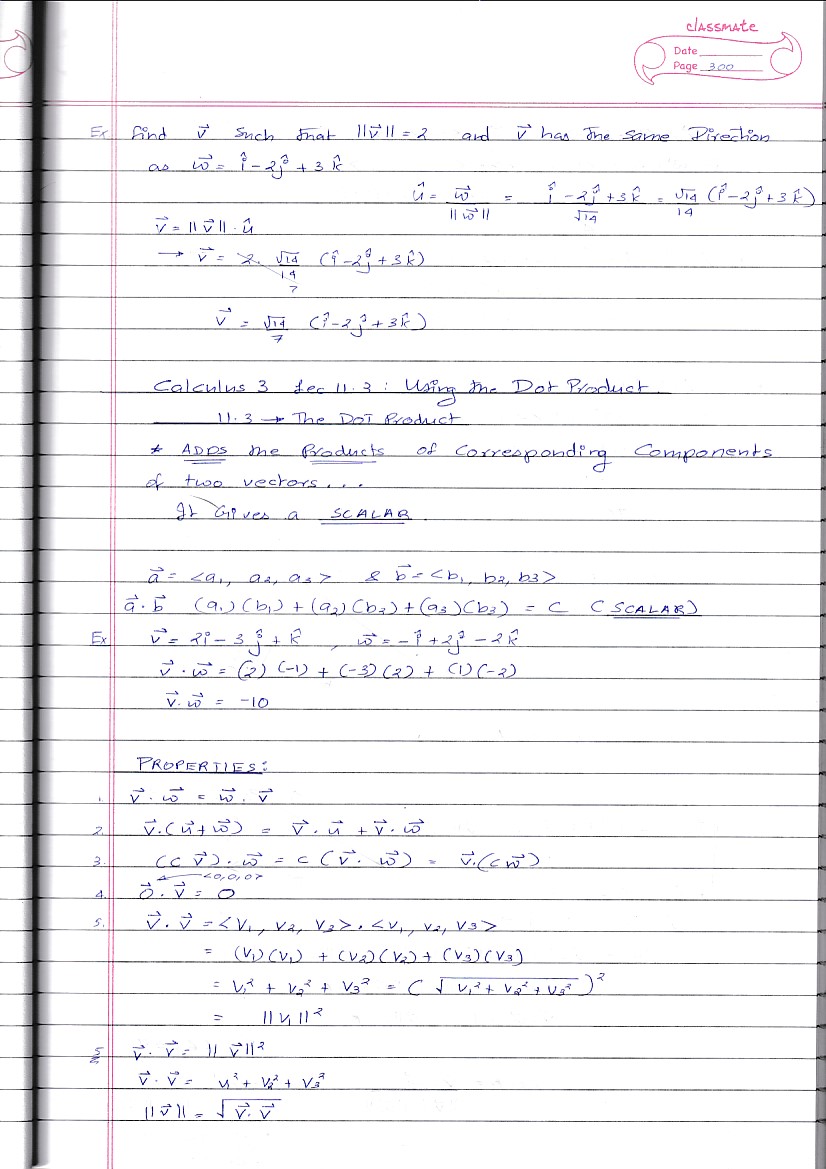 classmate
Date
Page 300
Ex find v⃗ Such that ||v⃗|| = 2 and v⃗ has the same Direction
as w⃗ = î - 2ĵ + 3k̂
û = w⃗/||w⃗|| = (î - 2ĵ + 3k̂)/√14 = √14/14 (î - 2ĵ + 3k̂)
v⃗ = ||v⃗|| · û
→ v⃗ = 2. √14/14 (î - 2ĵ + 3k̂)
7
v⃗ = √14/7 (î - 2ĵ + 3k̂)
Calculus 3 Lec 11.3 : Using the Dot Product
11.3 → The DOT Product
* ADDS the Products of Corresponding Components
of two vectors...
It Gives a SCALAR
a⃗ = <a₁, a₂, a₃> & b⃗ = <b₁, b₂, b₃>
a⃗ · b⃗ (a₁)(b₁) + (a₂)(b₂) + (a₃)(b₃) = C (SCALAR)
Ex v⃗ = 2î - 3ĵ + k̂ , w⃗ = -î + 2ĵ - 2k̂
v⃗ · w⃗ = (2)(-1) + (-3)(2) + (1)(-2)
v⃗ · w⃗ = -10
PROPERTIES:
1. v⃗ · w⃗ = w⃗ · v⃗
2. v⃗ · (u⃗ + w⃗) = v⃗ · u⃗ + v⃗ · w⃗
3. (c v⃗) · w⃗ = c (v⃗ · w⃗) = v⃗ · (c w⃗)
<0,0,0>
4. 0⃗ · v⃗ = 0
5. v⃗ · v⃗ = <v₁, v₂, v₃> · <v₁, v₂, v₃>
= (v₁)(v₁) + (v₂)(v₂) + (v₃)(v₃)
= v₁² + v₂² + v₃² = (√(v₁² + v₂² + v₃²))²
= ||v||²
5 v⃗ · v⃗ = ||v⃗||²
v⃗ · v⃗ = v₁² + v₂² + v₃²
||v⃗|| = √(v⃗ · v⃗)